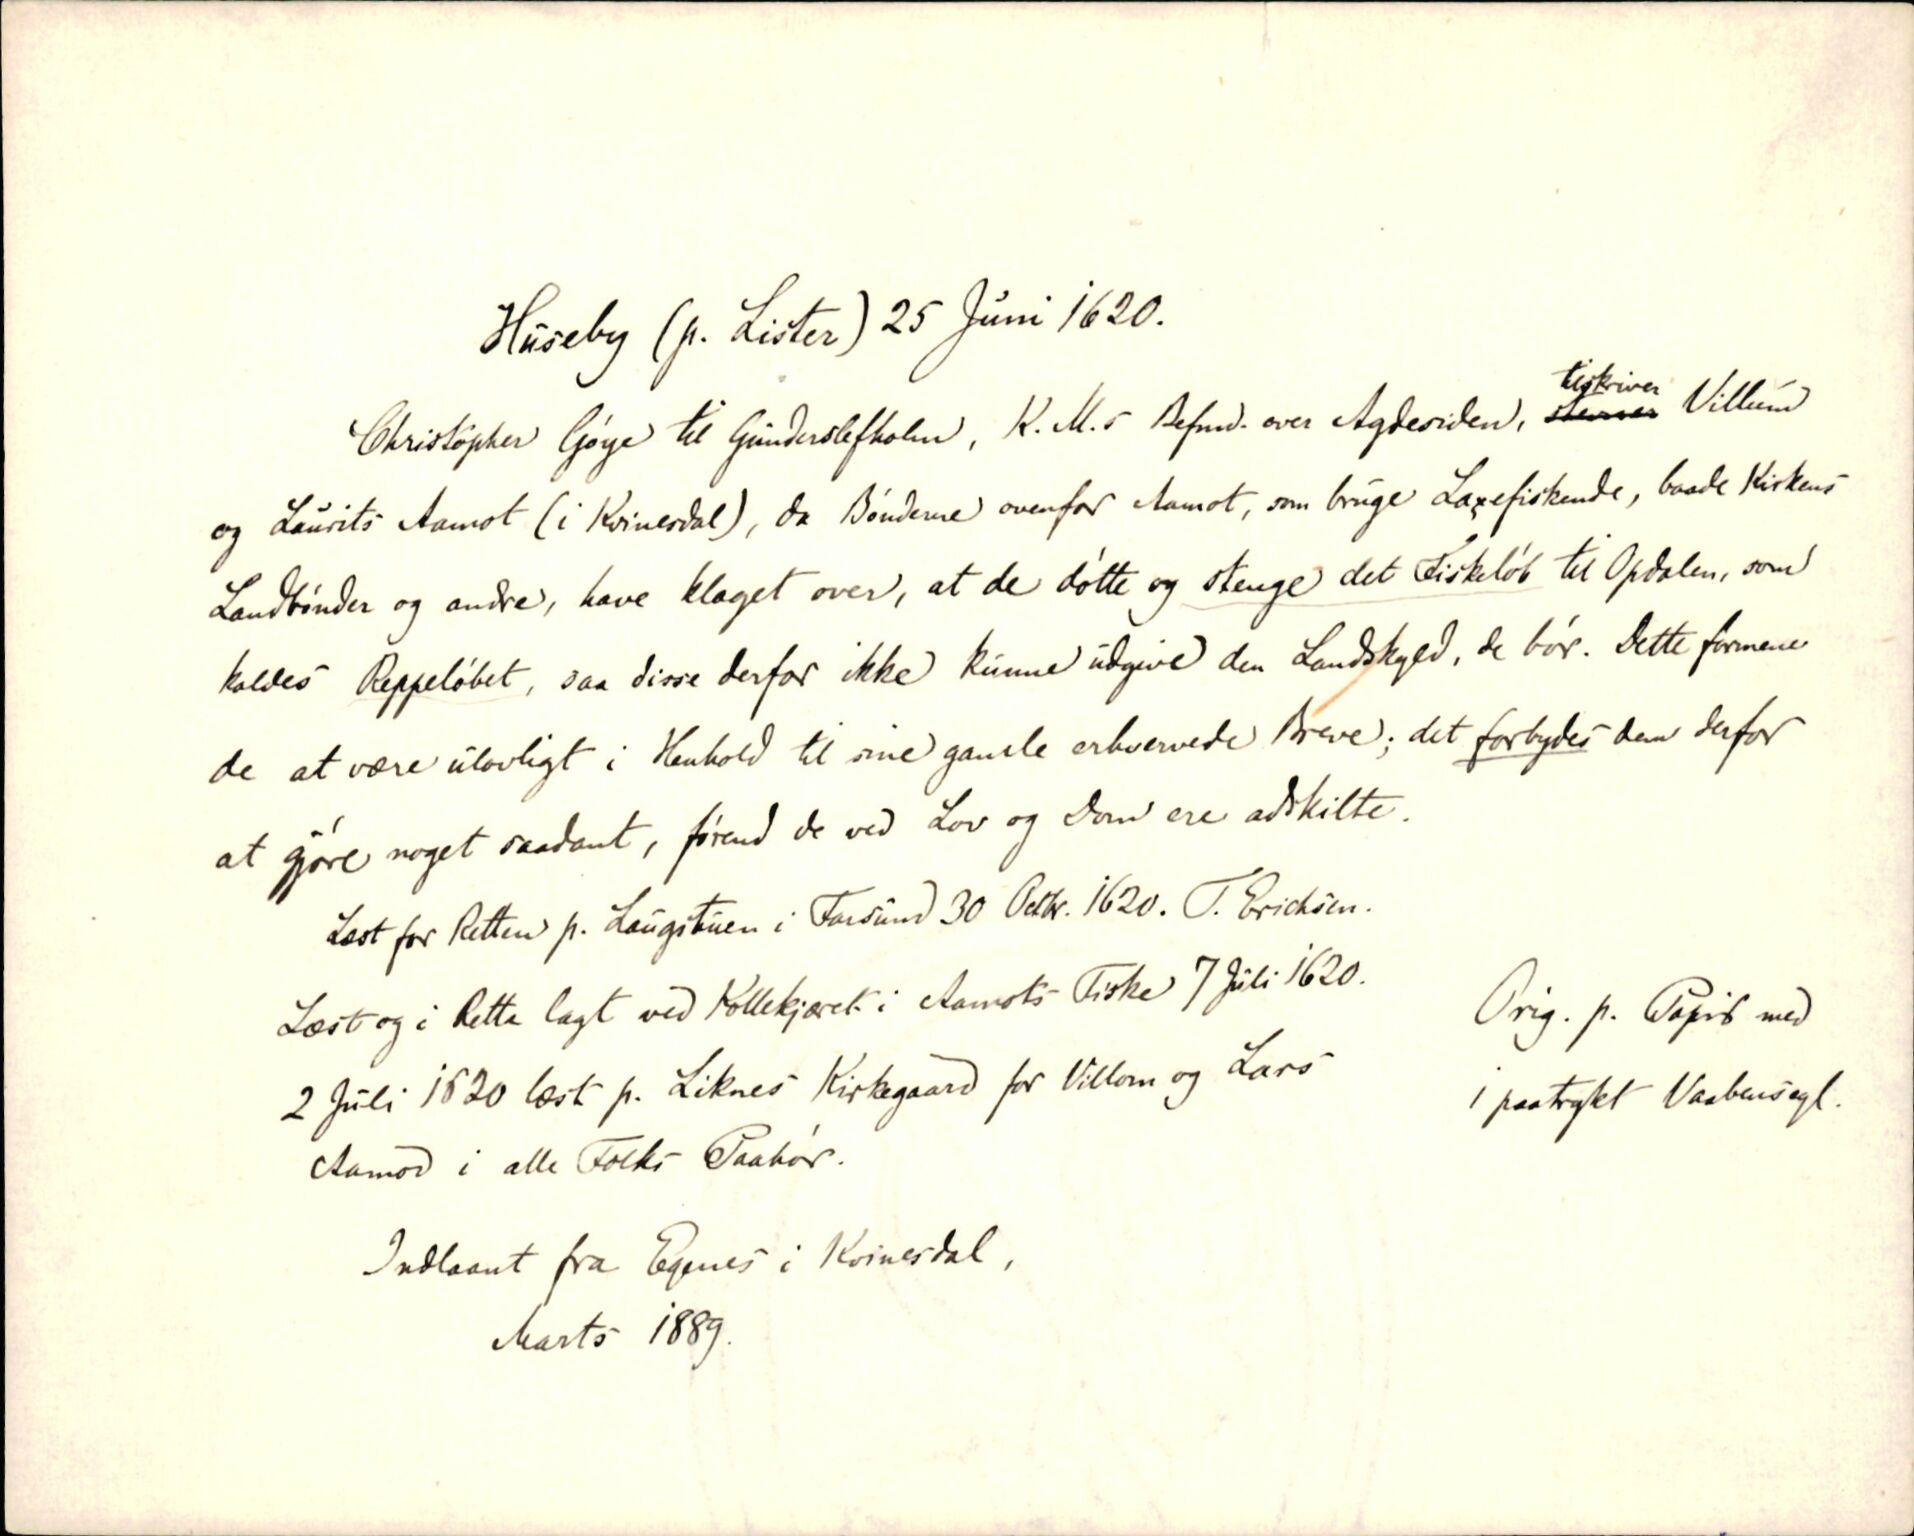 Huseby (p. Lister) 25 Juni 1620.
Christopher Gøye til Gunderslefholm, K. M.s Befmd. over Agdesiden, tilskriver Villum
og Laurits Aamot (i Kvinesdal), da Bønderne ovenfor Aamot, som bruge Laxefiskende, baade Kirkens
Landbønder og andre, have klaget over, at de døtte og stenge det Fiskeløb til Opdalen, som
kaldes Reppeløbet, saa disse derfor ikke kunne udgive den Landskyld, de bør. Dette formene
de at være ulovligt i Henhold til sine gamle erhvervede Breve; det forbydes dem derfor
at gjøre noget saadant, førend de ved Lov og Dom ere adskilte.
Læst for Retten p. Laugstuen i Farsund 30 Octbr. 1620. T. Erichsen.
Læst og i Rette lagt ved Kollekjæret i Aamots Fiske 7 Juli 1620.
2 Juli 1620 læst p. Liknes Kirkegaard for Villom og Lars
Aamod i alle Folks Paahør.
Orig. p. Papir med
1 paatrykt Vaabensegl.
Indlaant fra Egenes i Kvinesdal,
Marts 1889.